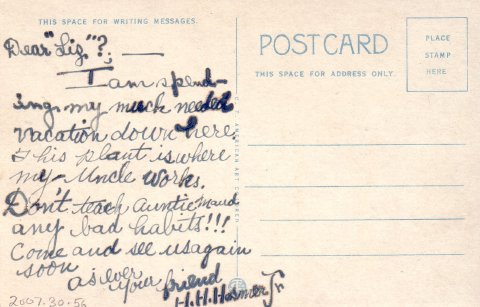 THIS SPACE FOR WRITING MESSAGES.
Dear "Liz"?; —
I am spend-
ing my much needed
vacation down here
This plant is where
my Uncle works.
Don't teach Auntie Maud
any bad habits!!!
Come and see us again
soon
as ever
your friend
H.H. Jr.
2007.30.56
POST CARD
THIS SPACE FOR ADDRESS ONLY.
PLACE
STAMP
HERE
AMERICAN ART